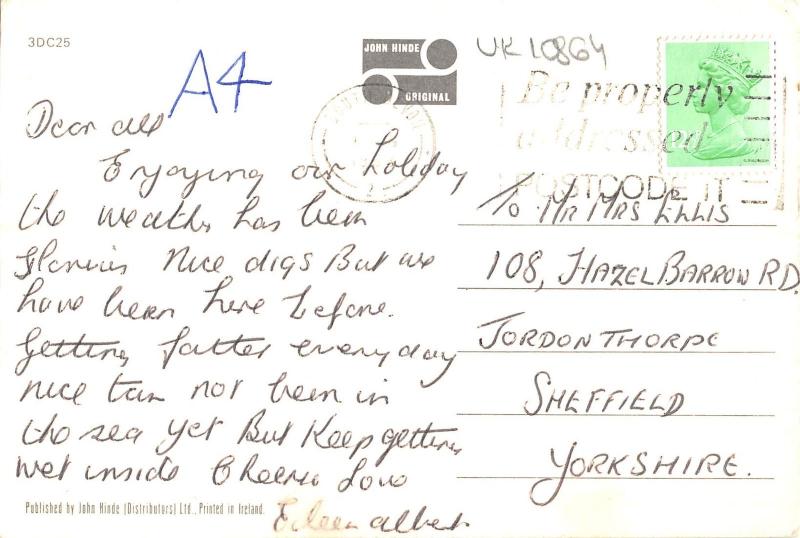 3DC25
A4
JOHN HINDE
ORIGINAL
UK 10864
Be properly
addressed
POSTCODE IT
Dear all
Enjoying our holiday
the weather has been
glorious Nice digs But we
have been here before.
getting fatter everyday
nice tan not been in
the sea yet But Keep getting
wet inside Cheerio Love
Eileen albert
To MR MRS ELLIS
108, HAZELBARROW RD,
JORDONTHORPE
SHEFFIELD
YORKSHIRE.
Published by John Hinde (Distributors) Ltd., Printed in Ireland.